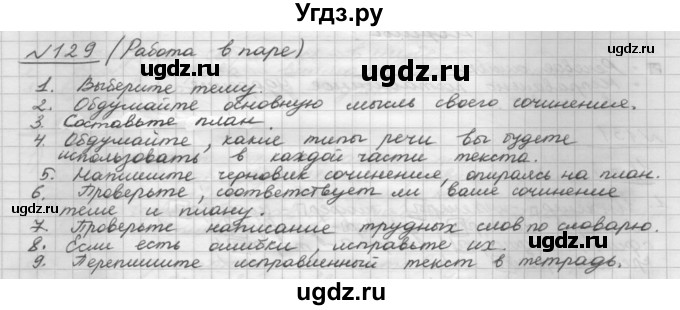 Угдз.ру
№129 (Работа в паре)
1. Выберите тему.
2. Обдумайте основную мысль своего сочинения.
3. Составьте план.
4. Обдумайте, какие типы речи вы будете
использовать в каждой части текста.
5. Напишите черновик сочинения, опираясь на план.
6. Проверьте, соответствует ли ваше сочинение
теме и плану.
7. Проверьте написание трудных слов по словарю.
8. Если есть ошибки, исправьте их.
9. Перепишите исправленный текст в тетрадь.
ugdz.ru
ugdz.ru
ugdz.ru
ugdz.ru
ugdz.ru
ugdz.ru
ugdz.ru
ugdz.ru